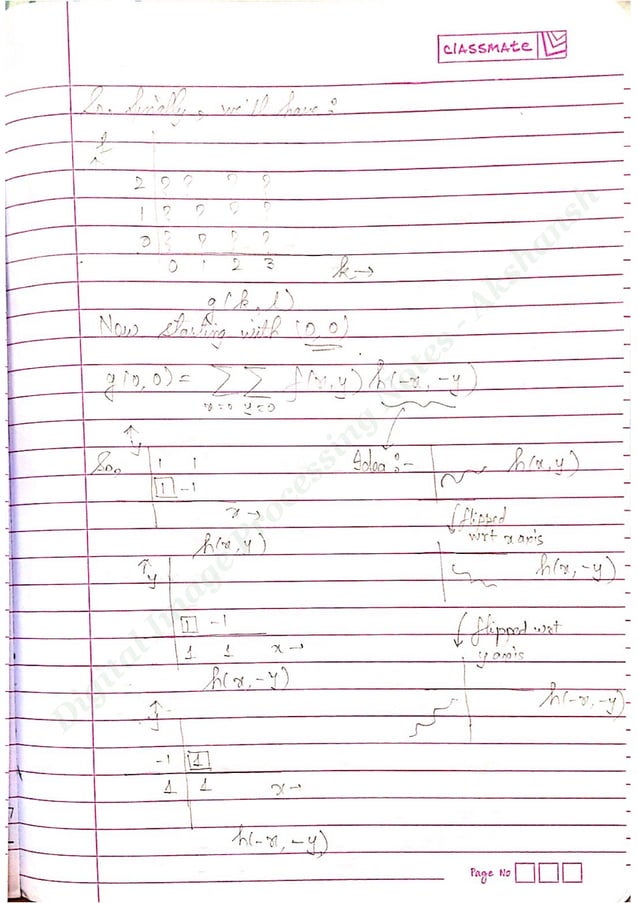 classmate
So, finally, we'll have:
l
2 ? ? ? ?
1 ? ? ? ?
0 ? ? ? ?
0 1 2 3 k→
g(k, l)
Now starting with (0,0)
g(0,0) = Σ Σ f(x,y) h(-x, -y)
x=0 y=0
↑y
So, 1 1
1 -1
x→
h(x,y)
Idea :- h(x,y)
↓ flipped
wrt x axis
h(x,-y)
↓ flipped wrt
y axis
h(-x,-y)
↑y
1 -1
1 1 x→
h(x,-y)
↑y
-1 1
1 1 x→
h(-x, -y)
Page No
Digital Image Processing Notes - Akshansh